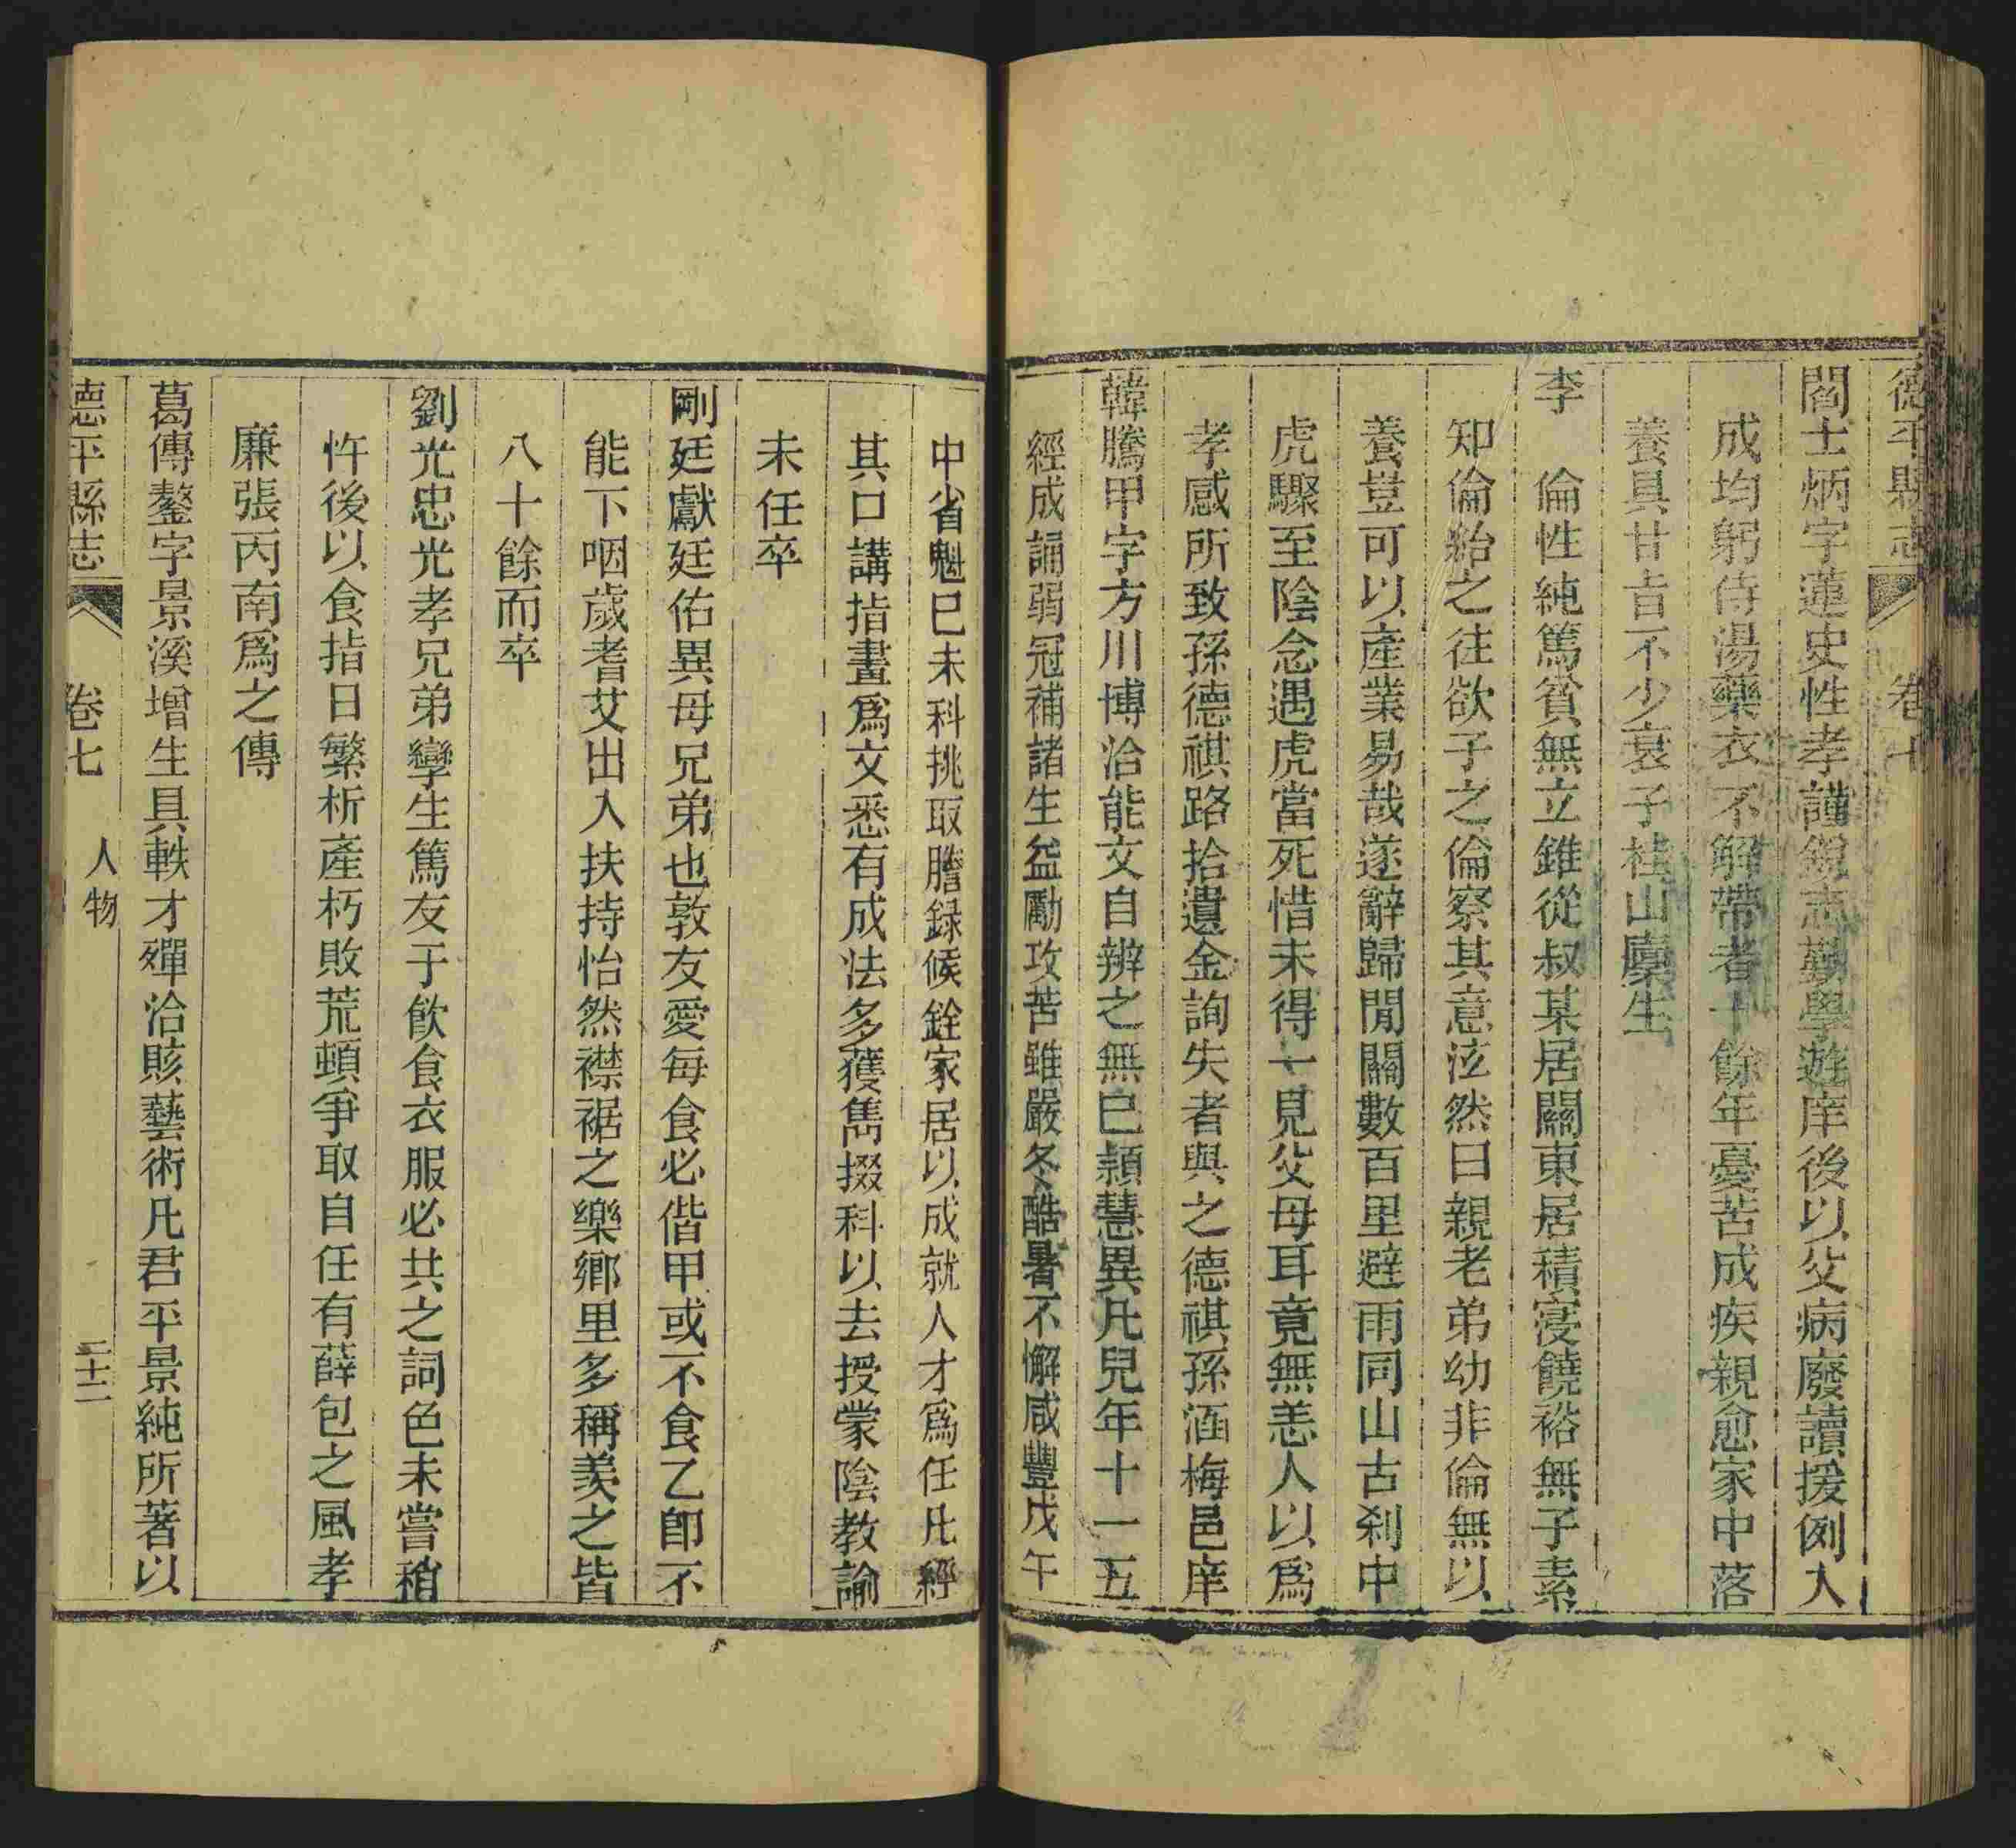 德平縣志 卷七
閻士炳字蓮史性孝謹銳志勤學遊庠後以父病廢讀援例入
成均躬侍湯藥衣不解帶者十餘年憂苦成疾親愈家中落
養具甘旨不少衰子桂山廩生
李 倫性純篤貧無立錐從叔某居關東居積寖饒裕無子素
知倫紿之往欲子之倫察其意泫然曰親老弟幼非倫無以
養豈可以產業易哉遂辭歸閒關數百里避雨同山古刹中
虎驟至陰念遇虎當死惜未得一見父母耳竟無恙人以爲
孝感所致孫德祺路拾遺金詢失者與之德祺孫涵梅邑庠
韓騰甲字方川博洽能文自辦之無已穎慧異凡兒年十一五
經成誦弱冠補諸生益勵攻苦雖嚴冬酷暑不懈咸豐戊午
中省魁已未科挑取謄録候銓家居以成就人才爲任凡經
其口講指畫爲文悉有成法多獲雋掇科以去授蒙陰教諭
未任卒
剛廷獻廷佑異母兄弟也敦友愛每食必偕甲或不食乙卽不
能下咽歲耆艾出入扶持怡然襟裾之樂鄉里多稱羨之皆
八十餘而卒
劉光忠光孝兄弟孿生篤友于飲食衣服必共之詞色未嘗稍
忤後以食指日繁析產朽敗荒頓爭取自任有薛包之風孝
廉張丙南爲之傳
葛傳鏊字景溪增生具軼才殫洽賅藝術凡君平景純所著以
德平縣志 卷七 人物 二十二